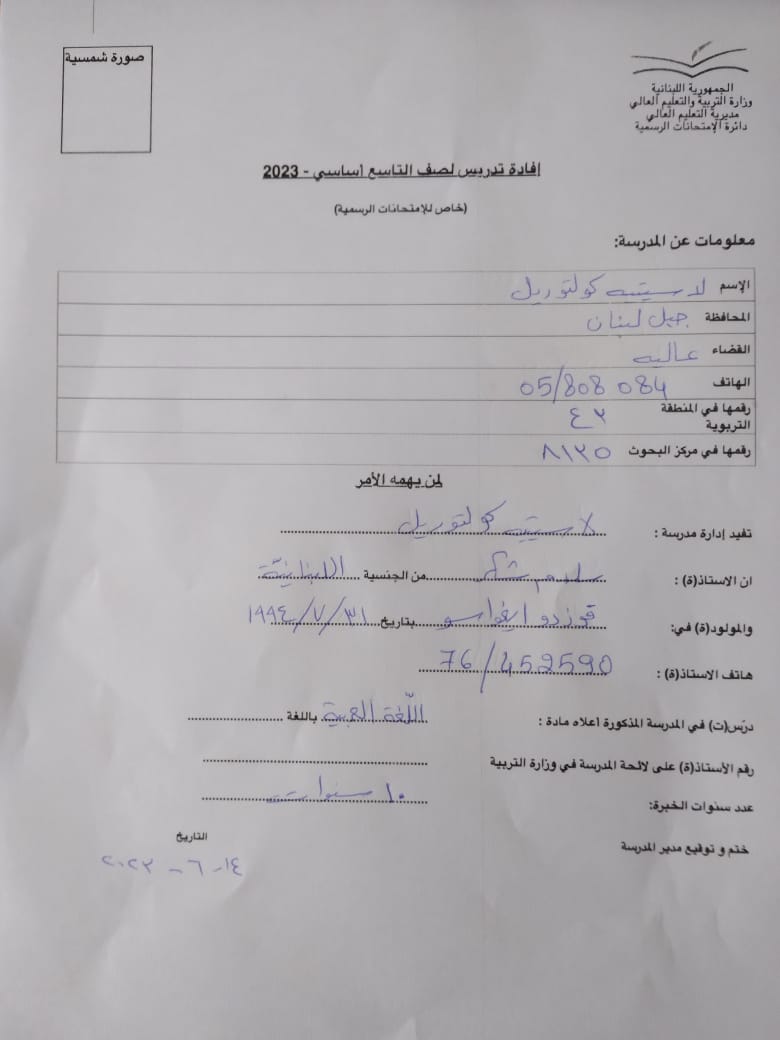 صورة شمسية
الجمهورية اللبنانية
وزارة التربية والتعليم العالي
مديرية التعليم العالي
دائرة الإمتحانات الرسمية
إفادة تدريس لصف التاسع أساسي - 2023
(خاص للإمتحانات الرسمية)
معلومات عن المدرسة:
الإسم لا سيتيه كولتوريل
المحافظة جبل لبنان
القضاء عاليه
الهاتف 05/808 084
رقمها في المنطقة التربوية ٤٣
رقمها في مركز البحوث ٨١٣٥
لمن يهمه الأمر
تفيد إدارة مدرسة : لا سيتيه كولتوريل
ان الاستاذ(ة) : من الجنسية اللبنانيّة
والمولود(ة) في: بتاريخ ٣١/٧/١٩٩٤
هاتف الاستاذ(ة) : 76/452590
درّس(ت) في المدرسة المذكورة أعلاه مادة : اللّغة العربية باللغة
رقم الأستاذ(ة) على لائحة المدرسة في وزارة التربية
عدد سنوات الخبرة: ١٠ سنوات
ختم و توقيع مدير المدرسة
التاريخ
١٤-٦-٢٠٢٣